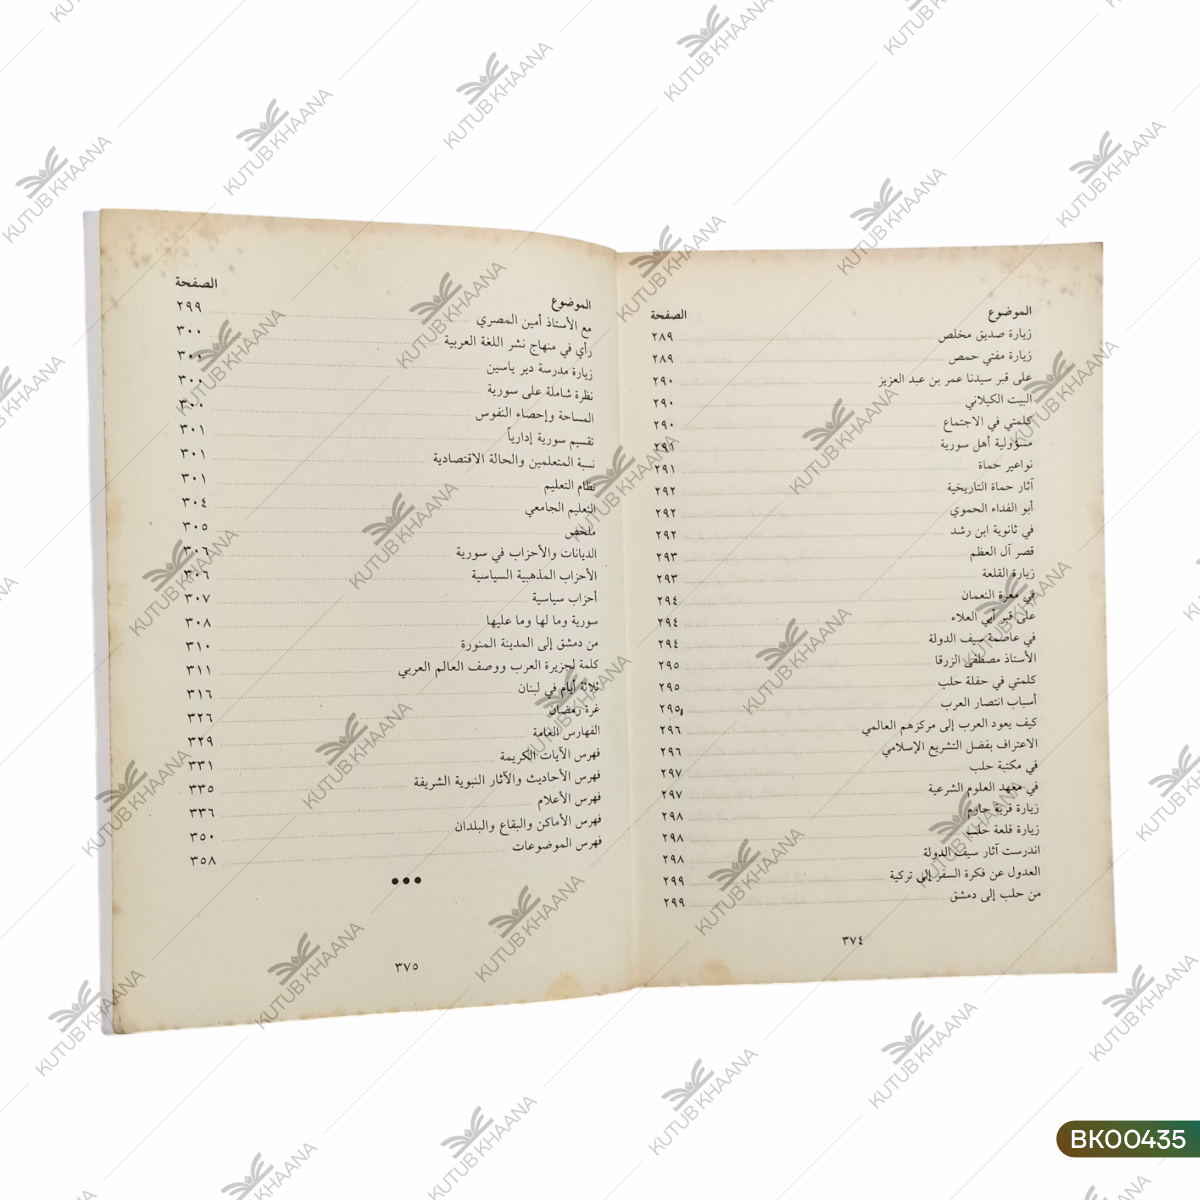 الموضوع الصفحة
زيارة صديق مخلص ٢٨٩
زيارة مفتي حمص ٢٨٩
على قبر سيدنا عمر بن عبد العزيز ٢٩٠
البيت الكيلاني ٢٩٠
كلمتي في الاجتماع ٢٩٠
مسؤولية أهل سورية ٢٩١
نواعير حماة ٢٩١
آثار حماة التاريخية ٢٩٢
أبو الفداء الحموي ٢٩٢
في ثانوية ابن رشد ٢٩٢
قصر آل العظم ٢٩٣
زيارة القلعة ٢٩٣
في معرة النعمان ٢٩٤
على قبر أبي العلاء ٢٩٤
في عاصمة سيف الدولة ٢٩٤
الأستاذ مصطفى الزرقا ٢٩٥
كلمتي في حفلة حلب ٢٩٥
أسباب انتصار العرب ٢٩٥
كيف يعود العرب إلى مركزهم العالمي ٢٩٦
الاعتراف بفضل التشريع الإسلامي ٢٩٦
في مكتبة حلب ٢٩٧
في معهد العلوم الشرعية ٢٩٧
زيارة قرية حارم ٢٩٨
زيارة قلعة حلب ٢٩٨
اندرست آثار سيف الدولة ٢٩٨
العدول عن فكرة السفر إلى تركية ٢٩٩
من حلب إلى دمشق ٢٩٩
٣٧٤
الموضوع الصفحة
مع الأستاذ أمين المصري ٢٩٩
رأي في منهاج نشر اللغة العربية ٣٠٠
زيارة مدرسة دير ياسين ٣٠٠
نظرة شاملة على سورية ٣٠٠
المساحة وإحصاء النفوس ٣٠٠
تقسيم سورية إدارياً ٣٠١
نسبة المتعلمين والحالة الاقتصادية ٣٠١
نظام التعليم ٣٠١
التعليم الجامعي ٣٠٤
ملخص ٣٠٥
الديانات والأحزاب في سورية ٣٠٦
الأحزاب المذهبية السياسية ٣٠٦
أحزاب سياسية ٣٠٧
سورية وما لها وما عليها ٣٠٨
من دمشق إلى المدينة المنورة ٣١٠
كلمة لجزيرة العرب ووصف العالم العربي ٣١١
ثلاثة أيام في لبنان ٣١٦
غرة رمضان ٣٢٦
الفهارس العامة ٣٢٩
فهرس الآيات الكريمة ٣٣١
فهرس الأحاديث والآثار النبوية الشريفة ٣٣٥
فهرس الأعلام ٣٣٦
فهرس الأماكن والبقاع والبلدان ٣٥٠
فهرس الموضوعات ٣٥٨
٣٧٥
KUTUB KHAANA
BK00435